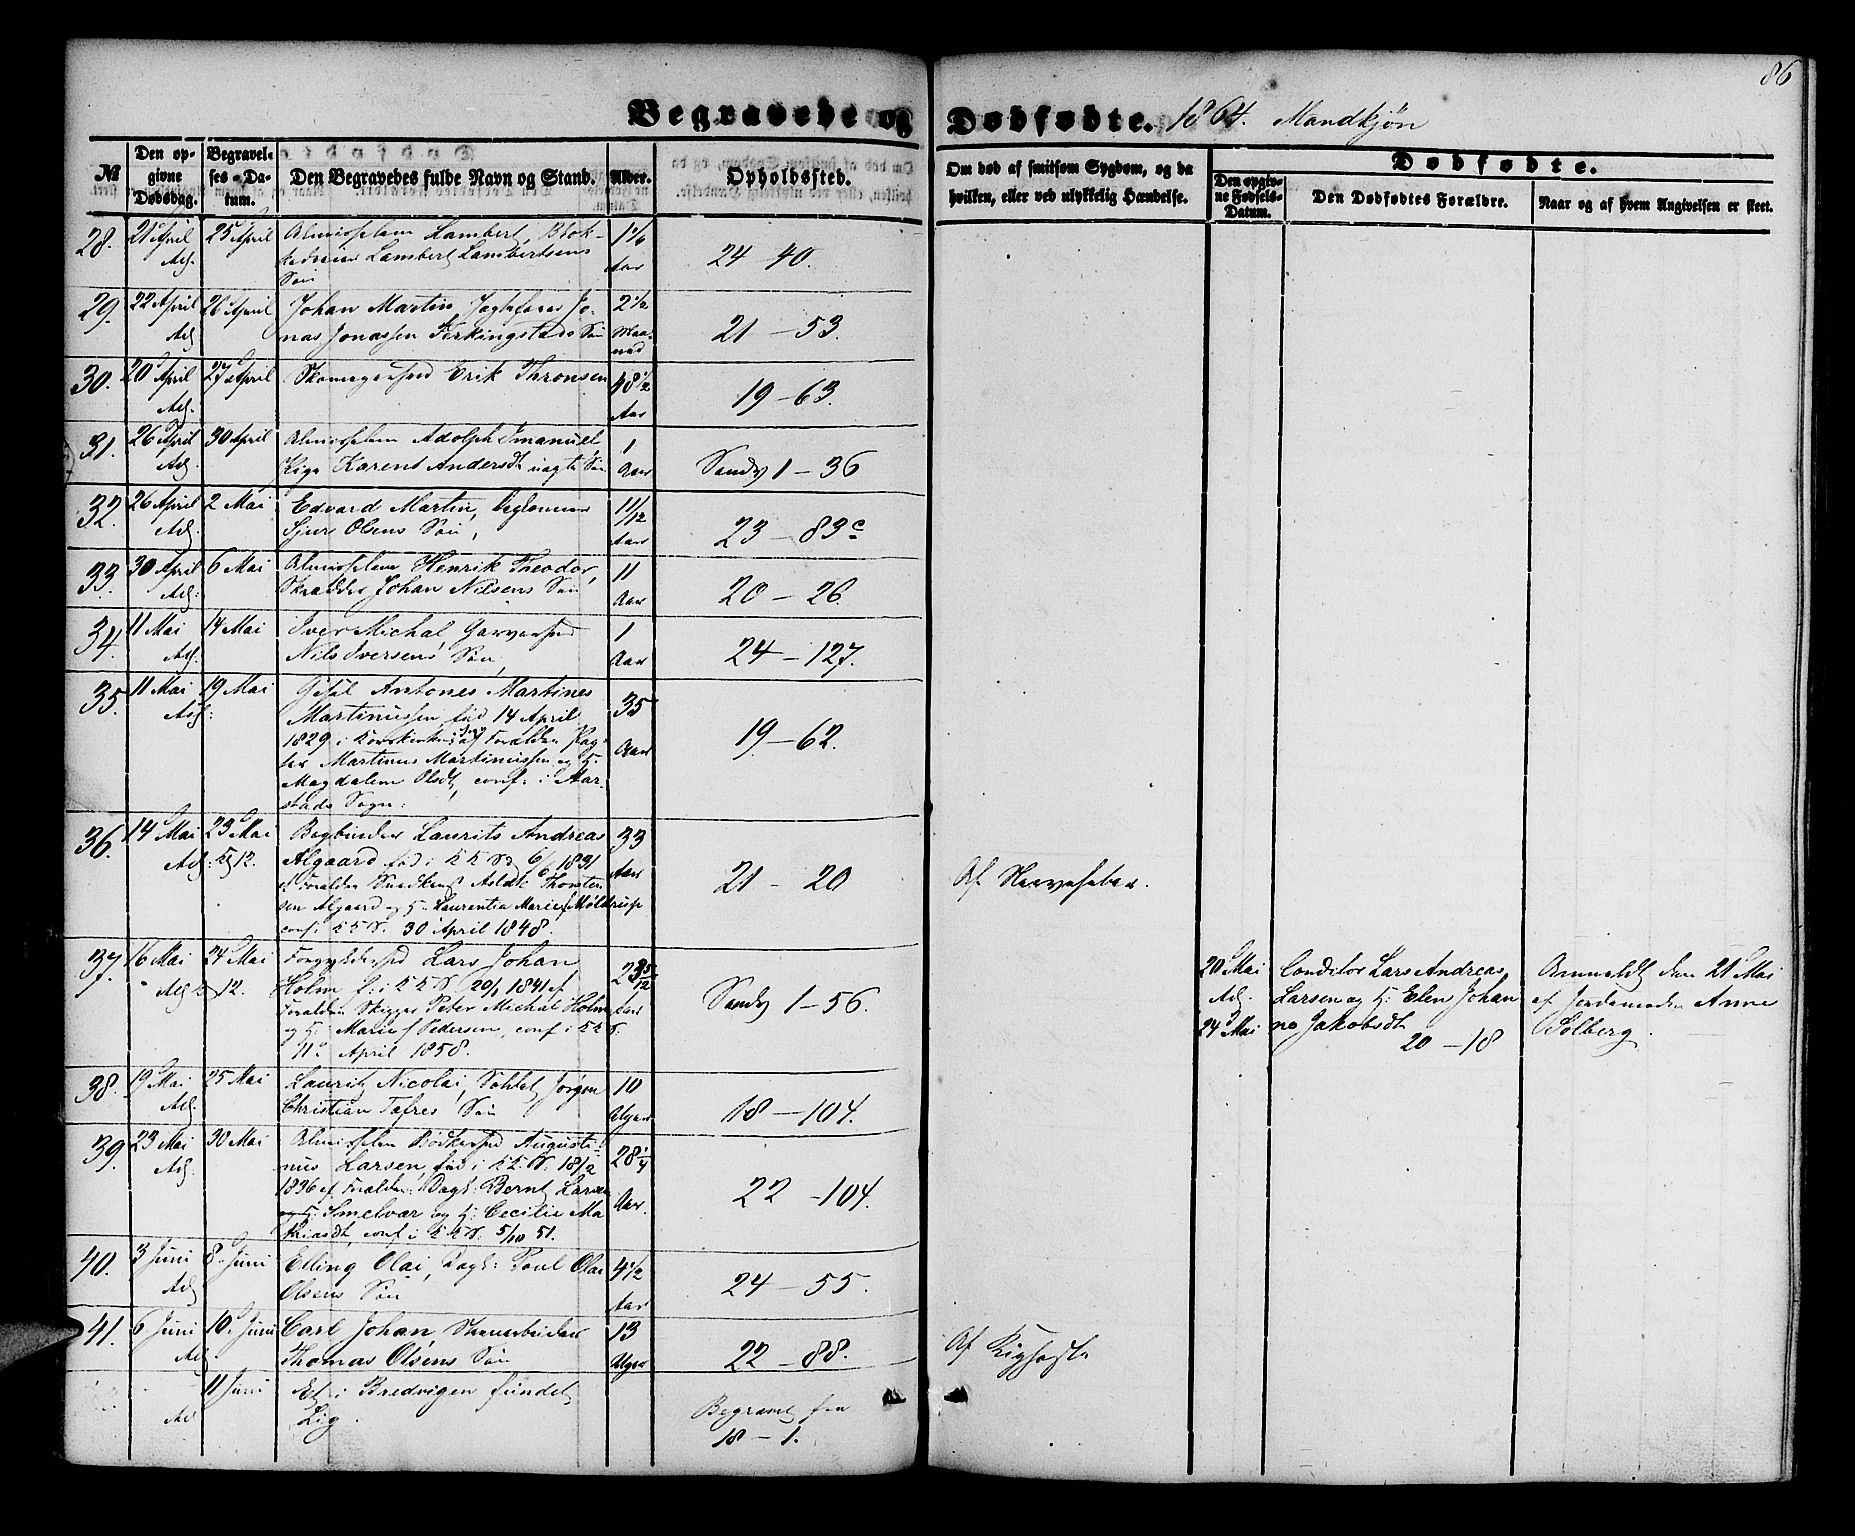 86
Begravede og Dødfødte. 1864. Mandkjøn
№
Den opgivne Dødsdag.
Begravelses-Datum.
Den Begravedes fulde Navn og Stand.
Alder.
Opholdssted.
Om død af smitsom Sygdom, og da hvilken, eller ved ulykkelig Hændelse.
Dødfødte.
Den opgivne Fødsels-Datum.
Den Dødfødtes Forældre.
Naar og af hvem Angivelsen er skeet.
28. 21 April 25 April Almisselem Lambert, Blok- 1 1/6
Lambert Lambertsens Aar 24-40.
Søn
29. 22 April 26 April Johan Martin, Jo- 2 1/2
nas Jonassen Ferkingstads Søn Maa- 21-53.
ned
30. 20 April 27 April Skomagersvd Erik Thronsen 48 1/2
Aar 19-63.
31. 26 April 30 April Almisselem Adolph Imanuel 1
Pige Karen Andersdt uægte Søn Aar Sandv 1-36
32. 26 April 2 Mai Edvard Martin, 11/12
Sjur Olsens Søn, Aar 23-83c
33. 30 April 6 Mai Almisselem Henrik Theodor, 11
Skrædder Johan Nilsens Søn Aar 20-26.
34. 11 Mai 14 Mai Iver Michal, Garversvd 1
Nils Iversens Søn, Aar 24-127.
35. 11 Mai 19 Mai Antones Martines
Martinussen, fød 14 April 35
1829 i Korskirken af Forældre Aar 19-62.
Martinus Martinussen og H:
Magdalena Olsdt, conf. i Aar-
stads Sogn.
36. 14 Mai 23 Mai Bogbinder Laurits Andreas 33
Algaard fød i 6/6 1831 Aar
af Forældre Aslak Thorsten- 21-20 Af Nervefeber.
sen Algaard og H. Laurentia Marie Møldrup
conf. 30 April 1848.
37. 16 Mai 24 Mai Lars Johan 23 5/12
Holm f. i 20/1 1841 af
Forældre Skipper Peter Michal Holm Sandv 1-56.
og H: Marie Pedersen, conf i
11 April 1858.
20 Mai Conditor Lars Andreas Anmeldt den 21 Mai
Larsen og H: Elen Johan- af Jordemoder Anne
24 Mai ne Jakobsdt Solberg.
20-18
38. 19 Mai 25 Mai Laurits Nicolai, Jørgen 10
Christian Tofres Søn Uger 18-104.
39. 23 Mai 30 Mai Almisselem Bødkersvd Augusti-
nus Larsen, fød i 18/2 28 1/4
1836 af Forældre: Dagk: Bernt Larsen Aar. 22-104.
og H: Smelvær og H: Cecilie Ma-
thiasdt, conf i 5/10 51.
40. 3 Juni 8 Juni Elling Olai, Dagk: Poul Olai 4 1/2
Olsens Søn Aar 24-55.
41. 6 Juni 10. Juni Carl Johan, 13
Thomas Olsens Søn Uger 22-88. Af Kighoste
11 Juni Et i Bredvigen fundet
Lig. Begravet fra
18-1.